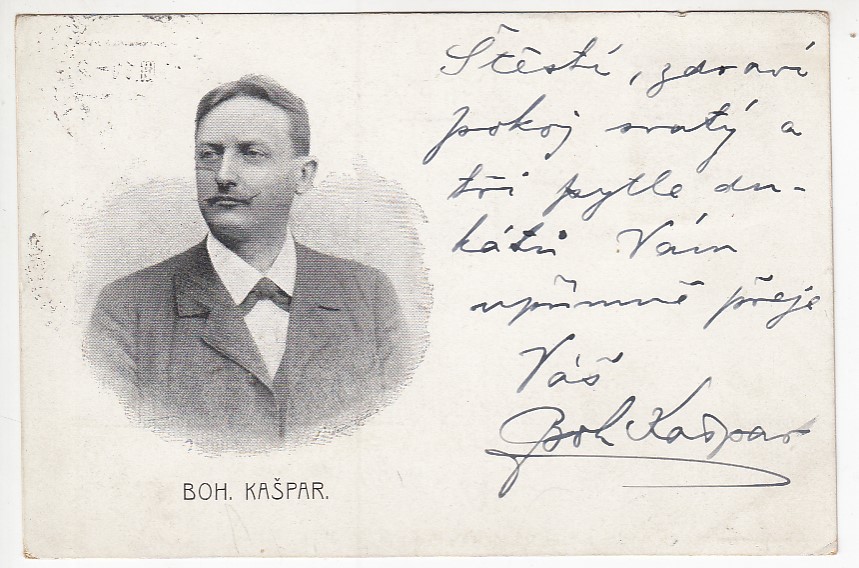 Štěstí, zdraví
pokoj svatý a
tři pytle du-
kátů Vám
upřímně přeje
Váš
Boh Kašpar
BOH. KAŠPAR.